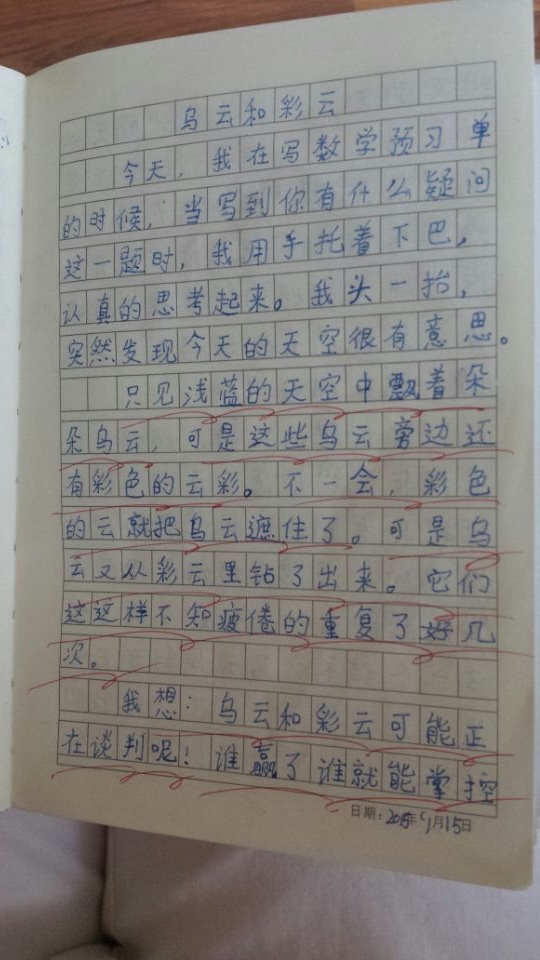 乌云和彩云
今天，我在写数学预习单
的时候，当写到你有什么疑问
这一题时，我用手托着下巴，
认真的思考起来。我头一抬，
突然发现今天的天空很有意思。
只见浅蓝的天空中飘着朵
朵乌云，可是这些乌云旁边还
有彩色的云彩。不一会，彩色
的云就把乌云遮住了。可是乌
云又从彩云里钻了出来。它们
这这样不知疲倦的重复了好几
次。
我想：乌云和彩云可能正
在谈判呢！谁赢了谁就能掌控
日期：2015年9月15日